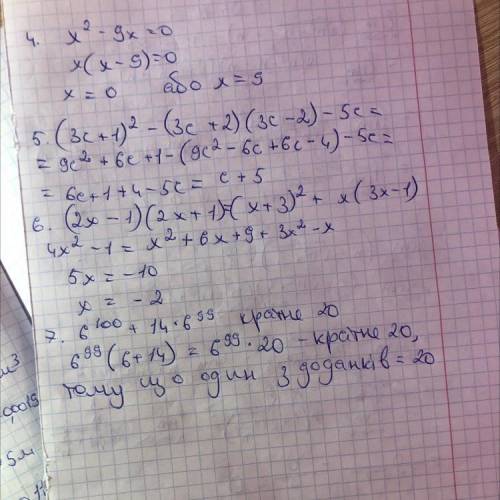 4. x² - 9x = 0
x(x - 9) = 0
x = 0 або x = 9
5. (3c + 1)² - (3c + 2)(3c - 2) - 5c =
= 9c² + 6c + 1 - (9c² - 6c + 6c - 4) - 5c =
= 6c + 1 + 4 - 5c = c + 5
6. (2x - 1)(2x + 1) = (x + 3)² + x(3x - 1)
4x² - 1 = x² + 6x + 9 + 3x² - x
5x = -10
x = -2
7. 6¹⁰⁰ + 14 · 6⁹⁹ кратне 20
6⁹⁹(6 + 14) = 6⁹⁹ · 20 - кратне 20,
тому що один з доданків = 20